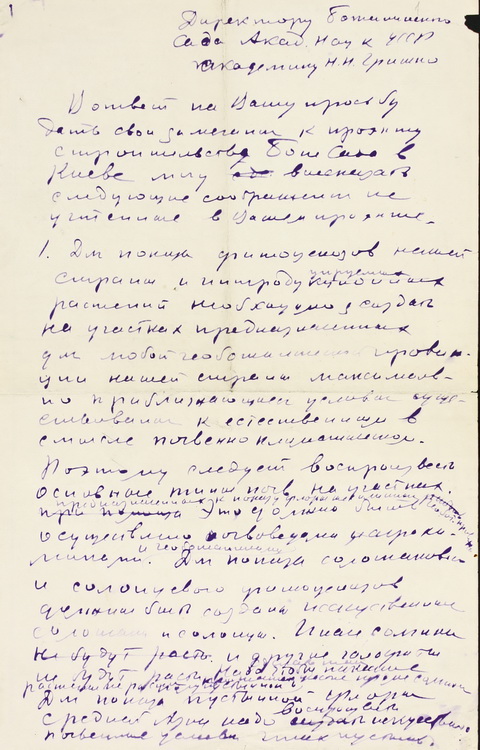 1
Директору Ботанического
Сада Акад. Наук УССР
академику Н.Н. Гришко
В ответ на Вашу просьбу
дать свои замечания к проэкту
строительства Бот. Сада в
Киеве могу высказать
следующие соображения не
учтенные в Вашем проэкте.
1. Для показа фитоценозов нашей
страны и интродуцируемых
растений необходимо создать
на участках предназначенных
для любой геоботанической провин-
ции нашей страны максималь-
но приближающиеся условия суще-
ствования к естественным в
смысле почвенно климатическом.
Поэтому следует воспроизвесть
основные типы почв на участках
предназначенных к показу
при показа Это должно быть
осуществлено почвоведами агрохи-
и геоботаниками
миками. Для показа солончаковых
и солонцового фитоценозов
должны быть созданы искуственные
солончаки и солонцы. Иначе солянки
не будут расть и другие галофиты
не будут расть
Для показа пустынной флоры
воспроизвесть
средней Азии надо
почвенные условия этих пустынь